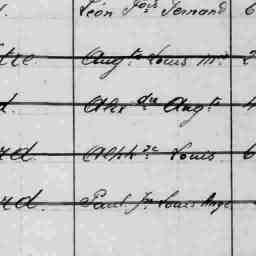 Léon Fçois Fernand 6
tre. Augte Louis Mie 2
d. Alexdre Augte 4
rd Alphse Louis. 6
rd. Paul Jn Louis Ange